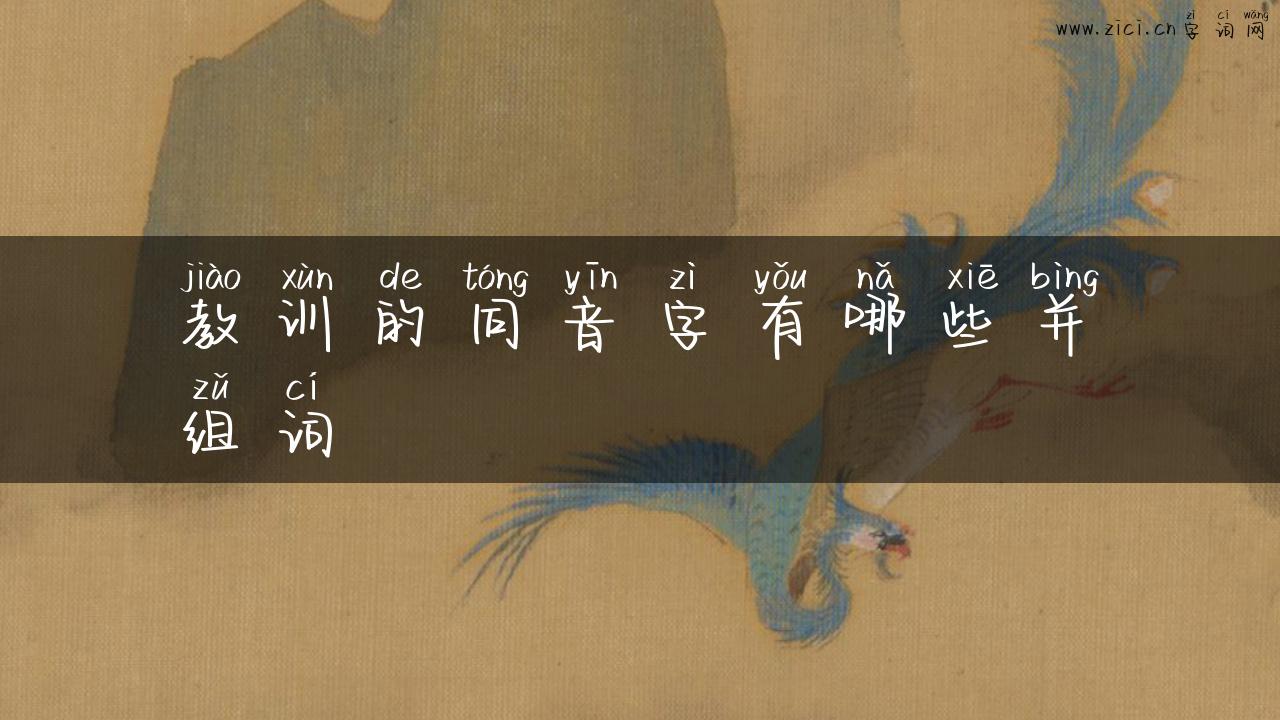 zì cí wǎng
www.zici.cn 字词网
jiào xùn de tóng yīn zì yǒu nǎ xiē bìng
教训的同音字有哪些并
zǔ cí
组词